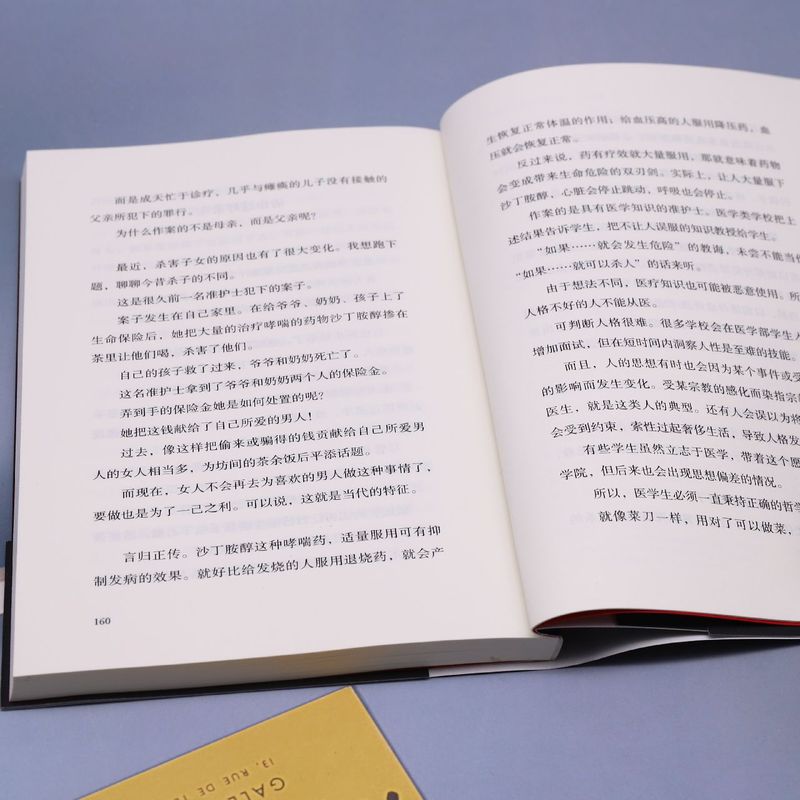 而是成天忙于诊疗、几乎与瘫痪的儿子没有接触的
父亲所犯下的罪行。
为什么作案的不是母亲，而是父亲呢？
最近，杀害子女的原因也有了很大变化。我想跑下
题，聊聊今昔杀子的不同。
这是很久前一名准护士犯下的案子。
案子发生在自己家里。在给爷爷、奶奶、孩子上了
生命保险后，她把大量的治疗哮喘的药物沙丁胺醇掺在
茶里让他们喝，杀害了他们。
自己的孩子救了过来，爷爷和奶奶死亡了。
这名准护士拿到了爷爷和奶奶两个人的保险金。
弄到手的保险金她是如何处置的呢？
她把这钱献给了自己所爱的男人！
过去，像这样把偷来或骗得的钱贡献给自己所爱男
人的女人相当多，为坊间的茶余饭后平添话题。
而现在，女人不会再去为喜欢的男人做这种事情了，
要做也是为了一己之利。可以说，这就是当代的特征。
言归正传。沙丁胺醇这种哮喘药，适量服用可有抑
制发病的效果。就好比给发烧的人服用退烧药，就会产
160
生恢复正常体温的作用；给血压高的人服用降压药，血
压就会恢复正常。
反过来说，药有疗效就大量服用，那就意味着药物
会变成带来生命危险的双刃剑。实际上，让人大量服下
沙丁胺醇，心脏会停止跳动，呼吸也会停止。
作案的是具有医学知识的准护士。医学类学校把上
述结果告诉学生，把不让人误服的知识教授给学生。
“如果……就会发生危险”的教诲，未尝不能当作
“如果……就可以杀人”的话来听。
由于想法不同，医疗知识也可能被恶意使用。所
人格不好的人不能从医。
可判断人格很难。很多学校会在医学部学生入
增加面试，但在短时间内洞察人性是至难的技能。
而且，人的思想有时也会因为某个事件或受
的影响而发生变化。受某宗教的感化而染指宗
医生，就是这类人的典型。还有人会误以为将
会受到约束，索性过起奢侈生活，导致人格发
有些学生虽然立志于医学，带着这个愿
学院，但后来也会出现思想偏差的情况。
所以，医学生必须一直秉持正确的哲学
就像菜刀一样，用对了可以做菜，
13, RUE DE